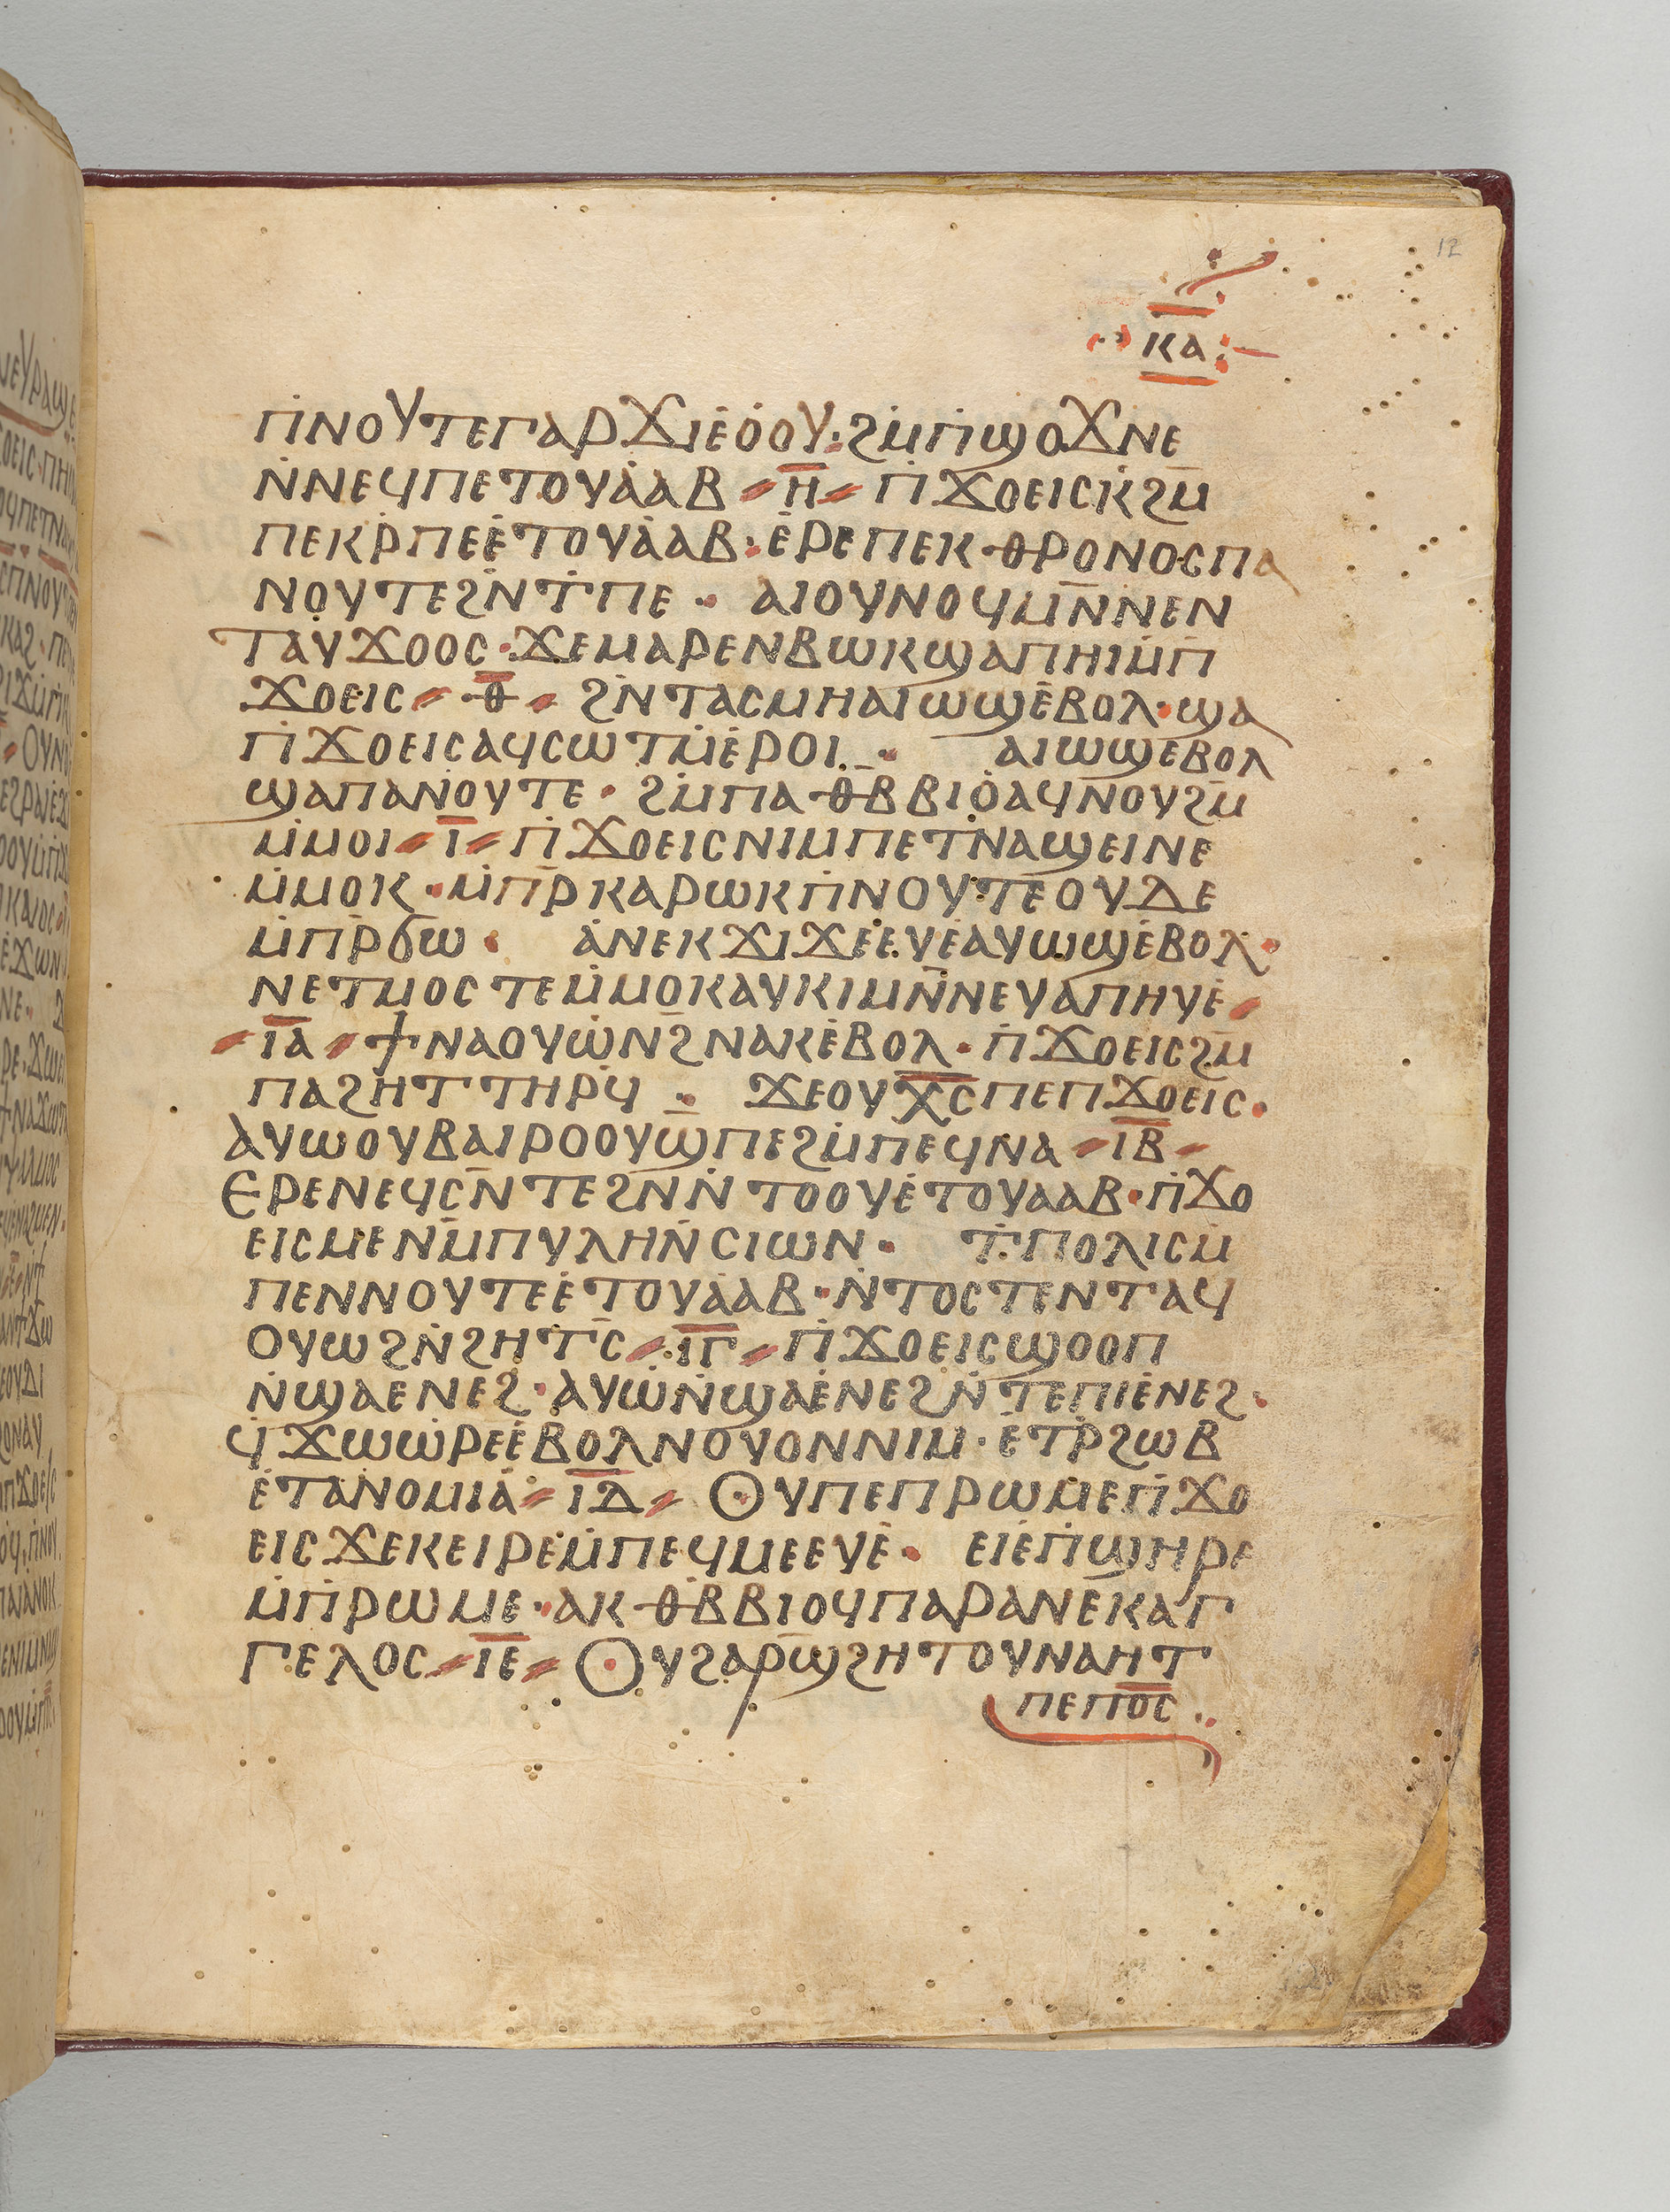 12
ⲕⲁ
ⲡ̇ⲛⲟⲩⲧⲉⲅⲁⲣϫⲓⲉ̇ⲟ̇ⲟⲩ·ϩⲙ̇ⲡ̇ϣⲟϫⲛⲉ
ⲛ̇ⲛⲉϥⲡⲉⲧⲟⲩⲁ̇ⲁⲃ ⲏ̅ ⲡ̇ϫⲟⲉⲓⲥⲕ̇ϩⲙ̅
ⲡⲉⲕⲣ̇ⲡⲉⲉ̇ⲧⲟⲩⲁ̇ⲁⲃ·ⲉ̇ⲣⲉⲡⲉⲕⲑⲣⲟⲛⲟⲥⲡⲁ
ⲛⲟⲩⲧⲉϩⲛ̇ⲧ̇ⲡⲉ· ⲁⲓⲟⲩⲛⲟϥⲙⲛ̅ⲛⲉⲛ
ⲧⲁⲩϫⲟⲟⲥ·ϫⲉⲙⲁⲣⲉⲛⲃⲱⲕϣⲁⲡⲏⲓⲙ̇ⲡ̇
ϫⲟⲉⲓⲥ ⲑ̅ ϩⲛ̇ⲧⲁⲥⲙⲏⲁⲓⲱϣⲉ̇ⲃⲟⲗ·ϣⲁ
ⲡ̇ϫⲟⲉⲓⲥⲁϥⲥⲱⲧⲙ̇ⲉ̇ⲣⲟⲓ· ⲁⲓⲱϣⲉⲃⲟⲗ
ϣⲁⲡⲁⲛⲟⲩⲧⲉ·ϩⲙ̇ⲡⲁⲑⲃ̅ⲃⲓⲟ̇ⲁϥⲛⲟⲩϩⲙ̅
ⲙ̇ⲙⲟⲓ ⲓ̅ ⲡ̇ϫⲟⲉⲓⲥⲛⲓⲙⲡⲉⲧⲛ̇ⲁϣⲉⲓⲛⲉ
ⲙ̇ⲙⲟⲕ·ⲙ̇ⲡⲣ̅ⲕⲁⲣⲱⲕⲡ̇ⲛⲟⲩⲧⲉⲟⲩⲇⲉ
ⲙ̇ⲡⲣ̅ϭⲱ· ⲁ̇ⲛⲉⲕϫⲓϫⲉⲉⲩⲉ̇ⲁⲩⲱϣⲉ̇ⲃⲟⲗ·
ⲛⲉⲧⲙⲟⲥⲧⲉⲙ̇ⲙⲟⲕⲁⲩⲕⲓⲙⲛ̅ⲛⲉⲩⲁ̇ⲡⲏⲩⲉ̇
ⲓ̅ⲁ̅ ϯⲛⲁⲟⲩⲱ̇ⲛϩ̅ⲛⲁⲕⲉ̇ⲃⲟⲗ·ⲡ̇ϫⲟⲉⲓⲥϩⲙ̅
ⲡⲁϩⲏⲧⲧⲏⲣϥ̇· ϫⲉⲟⲩⲭ̅ⲥ̅ⲡⲉⲡϫⲟⲉⲓⲥ·
ⲁⲩⲱⲟⲩⲃⲁⲓⲣⲟⲟⲩϣⲡⲉϩⲙ̇ⲡⲉϥⲛⲁ ⲓ̅ⲃ̅
ⲉⲣⲉⲛⲉϥⲥⲛ̅ⲧⲉϩⲛ̅ⲛ̇ⲧⲟⲟⲩⲉ̇ⲧⲟⲩⲁⲁⲃ·ⲡ̇ϫⲟ
ⲉⲓⲥⲙⲉⲛⲙ̅ⲡⲩⲗⲏⲛ̇ⲥⲓⲱⲛ· ⲧ̇ⲡⲟⲗⲓⲥⲙ̇
ⲡⲉⲛⲛⲟⲩⲧⲉⲉ̇ⲧⲟⲩⲁ̇ⲁⲃ·ⲛ̇ⲧⲟⲥⲧⲉⲛⲧⲁϥ
ⲟⲩⲱϩⲛ̇ϩⲏⲧⲥ̅ ⲓ̅ⲅ̅ ⲡ̇ϫⲟⲉⲓⲥϣⲟⲟⲡ
ⲛ̇ϣⲁⲉⲛⲉϩ·ⲁⲩⲱⲛ̇ϣⲁⲉ̇ⲛⲉϩⲛ̇ⲧⲉⲡⲓⲉ̇ⲛⲉϩ·
ϥ̇ϫⲱⲱ̇ⲣⲉⲉ̇ⲃⲟⲗⲛⲟⲩⲟⲛⲛⲓⲙ·ⲉ̇ⲧⲣ̇ϩⲱⲃ
ⲉ̇ⲧⲁⲛⲟⲙⲓⲁ̇ ⲓ̅ⲇ̅ ⲟⲩⲡⲉⲡⲣⲱⲙⲉⲡ̇ϫⲟ
ⲉⲓⲥϫⲉⲕⲉⲓⲣⲉⲙ̇ⲡⲉϥⲙⲉⲉⲩⲉ̇· ⲉⲓⲉ̇ⲡ̇ϣⲏⲣⲉ
ⲙ̇ⲡ̇ⲣⲱⲙⲉ·ⲁⲕⲑⲃ̅ⲃⲓⲟϥⲡⲁⲣⲁⲛⲉⲕⲁⲅ
ⲅⲉⲗⲟⲥ ⲓ̅ⲉ̅ ⲟⲩϩⲁⲣϣ̅ϩⲏⲧⲟⲩⲛⲁⲏⲧ
ⲡⲉⲡⲟ̅ⲥ̅